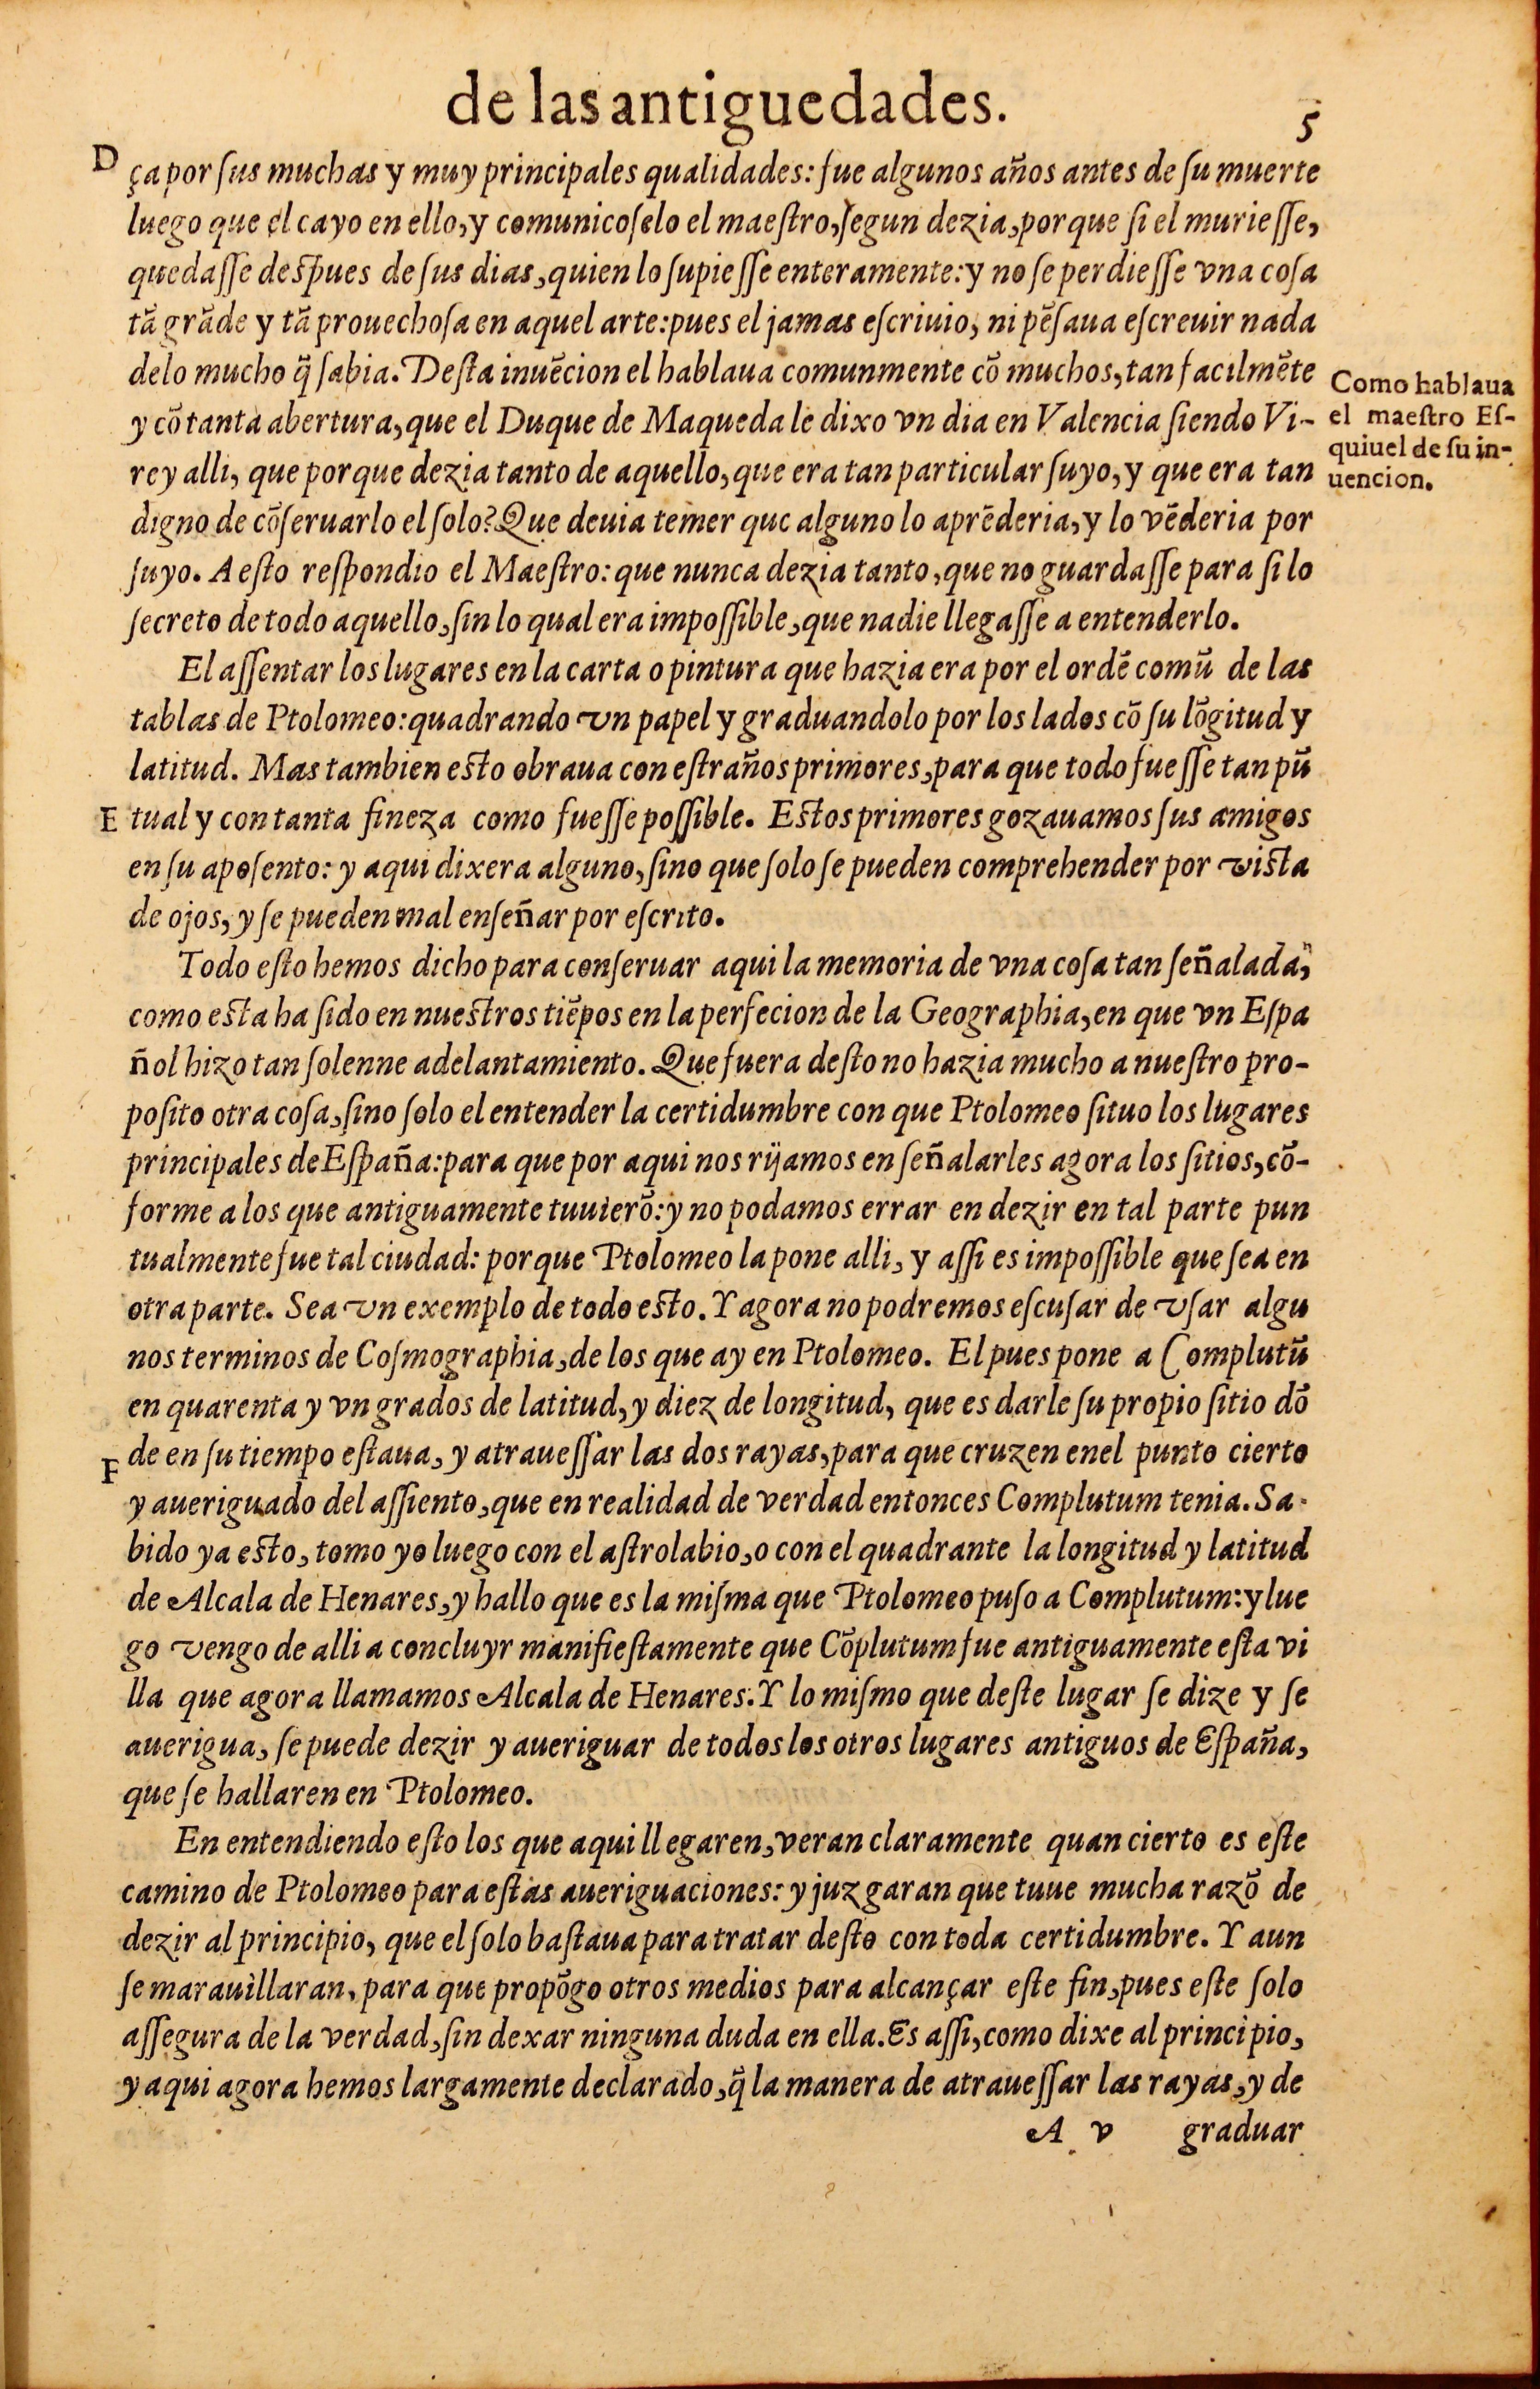 de las antiguedades.
5
D
ça por ſus muchas y muy principales qualidades: fue algunos años antes de ſu muerte
luego que el cayo en ello, y comunicoſelo el maeſtro, ſegun dezia, porque ſi el murieſſe,
quedaſſe deſpues de ſus dias, quien lo ſupieſſe enteramente: y no ſe perdieſſe vna coſa
tã grãde y tã prouechoſa en aquel arte: pues el jamas eſcriuio, ni pẽſaua eſcreuir nada
delo mucho q̃ ſabia. Deſta inuẽcion el hablaua comunmente cõ muchos, tan facilmẽte
y cõ tanta abertura, que el Duque de Maqueda le dixo vn dia en Valencia ſiendo Vi-
rey alli, que porque dezia tanto de aquello, que era tan particular ſuyo, y que era tan
digno de cõſeruarlo el ſolo? Que deuia temer que alguno lo aprẽderia, y lo vẽderia por
ſuyo. A eſto reſpondio el Maeſtro: que nunca dezia tanto, que no guardaſſe para ſi lo
ſecreto de todo aquello, ſin lo qual era impoſſible, que nadie llegaſſe a entenderlo.
Como hablaua
el maeſtro Eſ-
quiuel de ſu in-
uencion.
El aſſentar los lugares en la carta o pintura que hazia era por el ordẽ comũ de las
tablas de Ptolomeo: quadrando vn papel y graduandolo por los lados cõ ſu lõgitud y
latitud. Mas tambien eſto obraua con eſtraños primores, para que todo fueſſe tan pũ
E
tual y con tanta fineza como fueſſe poſſible. Eſtos primores gozauamos ſus amigos
en ſu apoſento: y aqui dixera alguno, ſino que ſolo ſe pueden comprehender por viſta
de ojos, y ſe pueden mal enſeñar por eſcrito.
Todo eſto hemos dicho para conſeruar aqui la memoria de vna coſa tan ſeñalada,
como eſta ha ſido en nueſtros tiẽpos en la perfecion de la Geographia, en que vn Eſpa
ñol hizo tan ſolenne adelantamiento. Que fuera deſto no hazia mucho a nueſtro pro-
poſito otra coſa, ſino ſolo el entender la certidumbre con que Ptolomeo ſituo los lugares
principales de Eſpaña: para que por aqui nos rijamos en ſeñalarles agora los ſitios, cõ-
forme a los que antiguamente tuuierõ: y no podamos errar en dezir en tal parte pun
tualmente fue tal ciudad: porque Ptolomeo la pone alli, y aſſi es impoſſible que ſea en
otra parte. Sea vn exemplo de todo eſto. Y agora no podremos eſcuſar de vſar algu
nos terminos de Coſmographia, de los que ay en Ptolomeo. El pues pone a Complutũ
en quarenta y vn grados de latitud, y diez de longitud, que es darle ſu propio ſitio dõ
F
de en ſu tiempo eſtaua, y atraueſſar las dos rayas, para que cruzen enel punto cierto
y aueriguado del aſſiento, que en realidad de verdad entonces Complutum tenia. Sa-
bido ya eſto, tomo yo luego con el aſtrolabio, o con el quadrante la longitud y latitud
de Alcala de Henares, y hallo que es la miſma que Ptolomeo puſo a Complutum: y lue
go vengo de alli a concluyr manifieſtamente que Cõplutum fue antiguamente eſta vi
lla que agora llamamos Alcala de Henares. Y lo miſmo que deſte lugar ſe dize y ſe
auerigua, ſe puede dezir y aueriguar de todos los otros lugares antiguos de Eſpaña,
que ſe hallaren en Ptolomeo.
En entendiendo eſto los que aqui llegaren, veran claramente quan cierto es eſte
camino de Ptolomeo para eſtas aueriguaciones: y juzgaran que tuue mucha razõ de
dezir al principio, que el ſolo baſtaua para tratar deſto con toda certidumbre. Y aun
ſe marauillaran, para que propõgo otros medios para alcançar eſte fin, pues eſte ſolo
aſſegura de la verdad, ſin dexar ninguna duda en ella. Es aſſi, como dixe al principio,
y aqui agora hemos largamente declarado, q̃ la manera de atraueſſar las rayas, y de
A v graduar